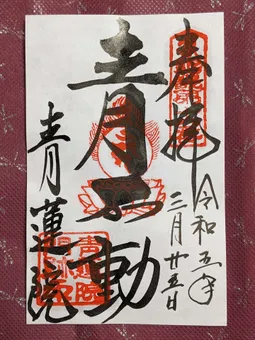 奉拝
令和五年
二月廿五日
青不動
青蓮院